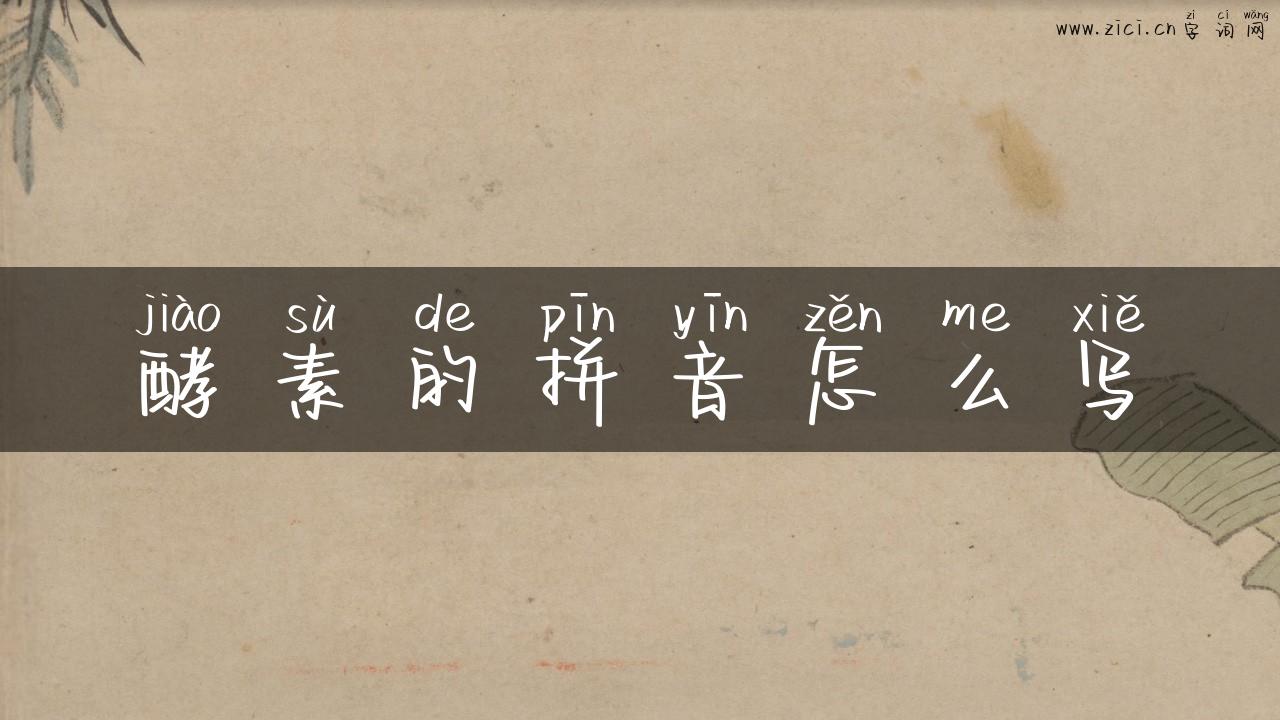 zì cí wǎng
www.zici.cn 字 词 网
jiào sù de pīn yīn zěn me xiě
酵 素 的 拼 音 怎 么 写